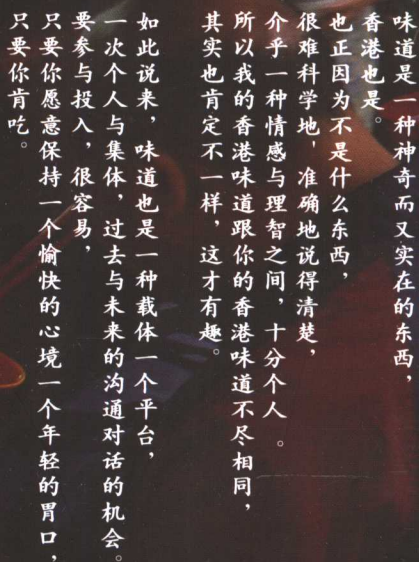 味道是一种神奇而又实在的东西，
香港也是。
也正因为不是什么东西，
很难科学地，准确地说得清楚，
介乎一种情感与理智之间，十分个人。
所以我的香港味道跟你的香港味道不尽相同，
其实也肯定不一样，这才有趣。
如此说来，味道也是一种载体一个平台，
一次个人与集体，过去与未来的沟通对话的机会。
要参与投入，很容易，
只要你愿意保持一个愉快的心境一个年轻的胃口，
只要你肯吃。